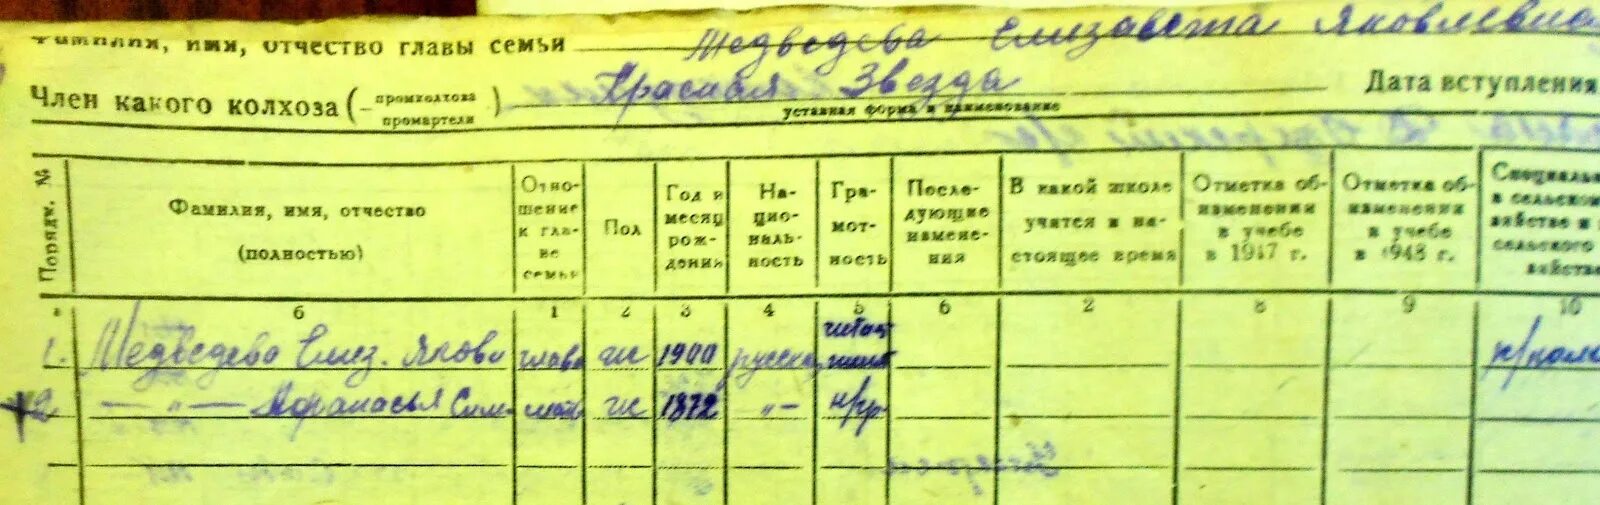 Фамилия, имя, отчество главы семьи Медведева Елизавета Яковлевна
Член какого колхоза (промколхоза промартели) Красная Звезда Дата вступления
уставная форма и наименование
Порядк. № | Фамилия, имя, отчество (полностью) | Отношение к главе семьи | Пол | Год и месяц рождения | Национальность | Грамотность | Последующие изменения | В какой школе учится в настоящее время | Отметка об изменении в учебе в 1947 г. | Отметка об изменении в учебе в 1948 г. | в сельском
б 1 2 3 4 5 6 2 8 9 10
1. Медведева Елиз. Яковл глава ж 1900 русская
2. — " — Афанасья Сим. мать ж 1872 " — н/гр